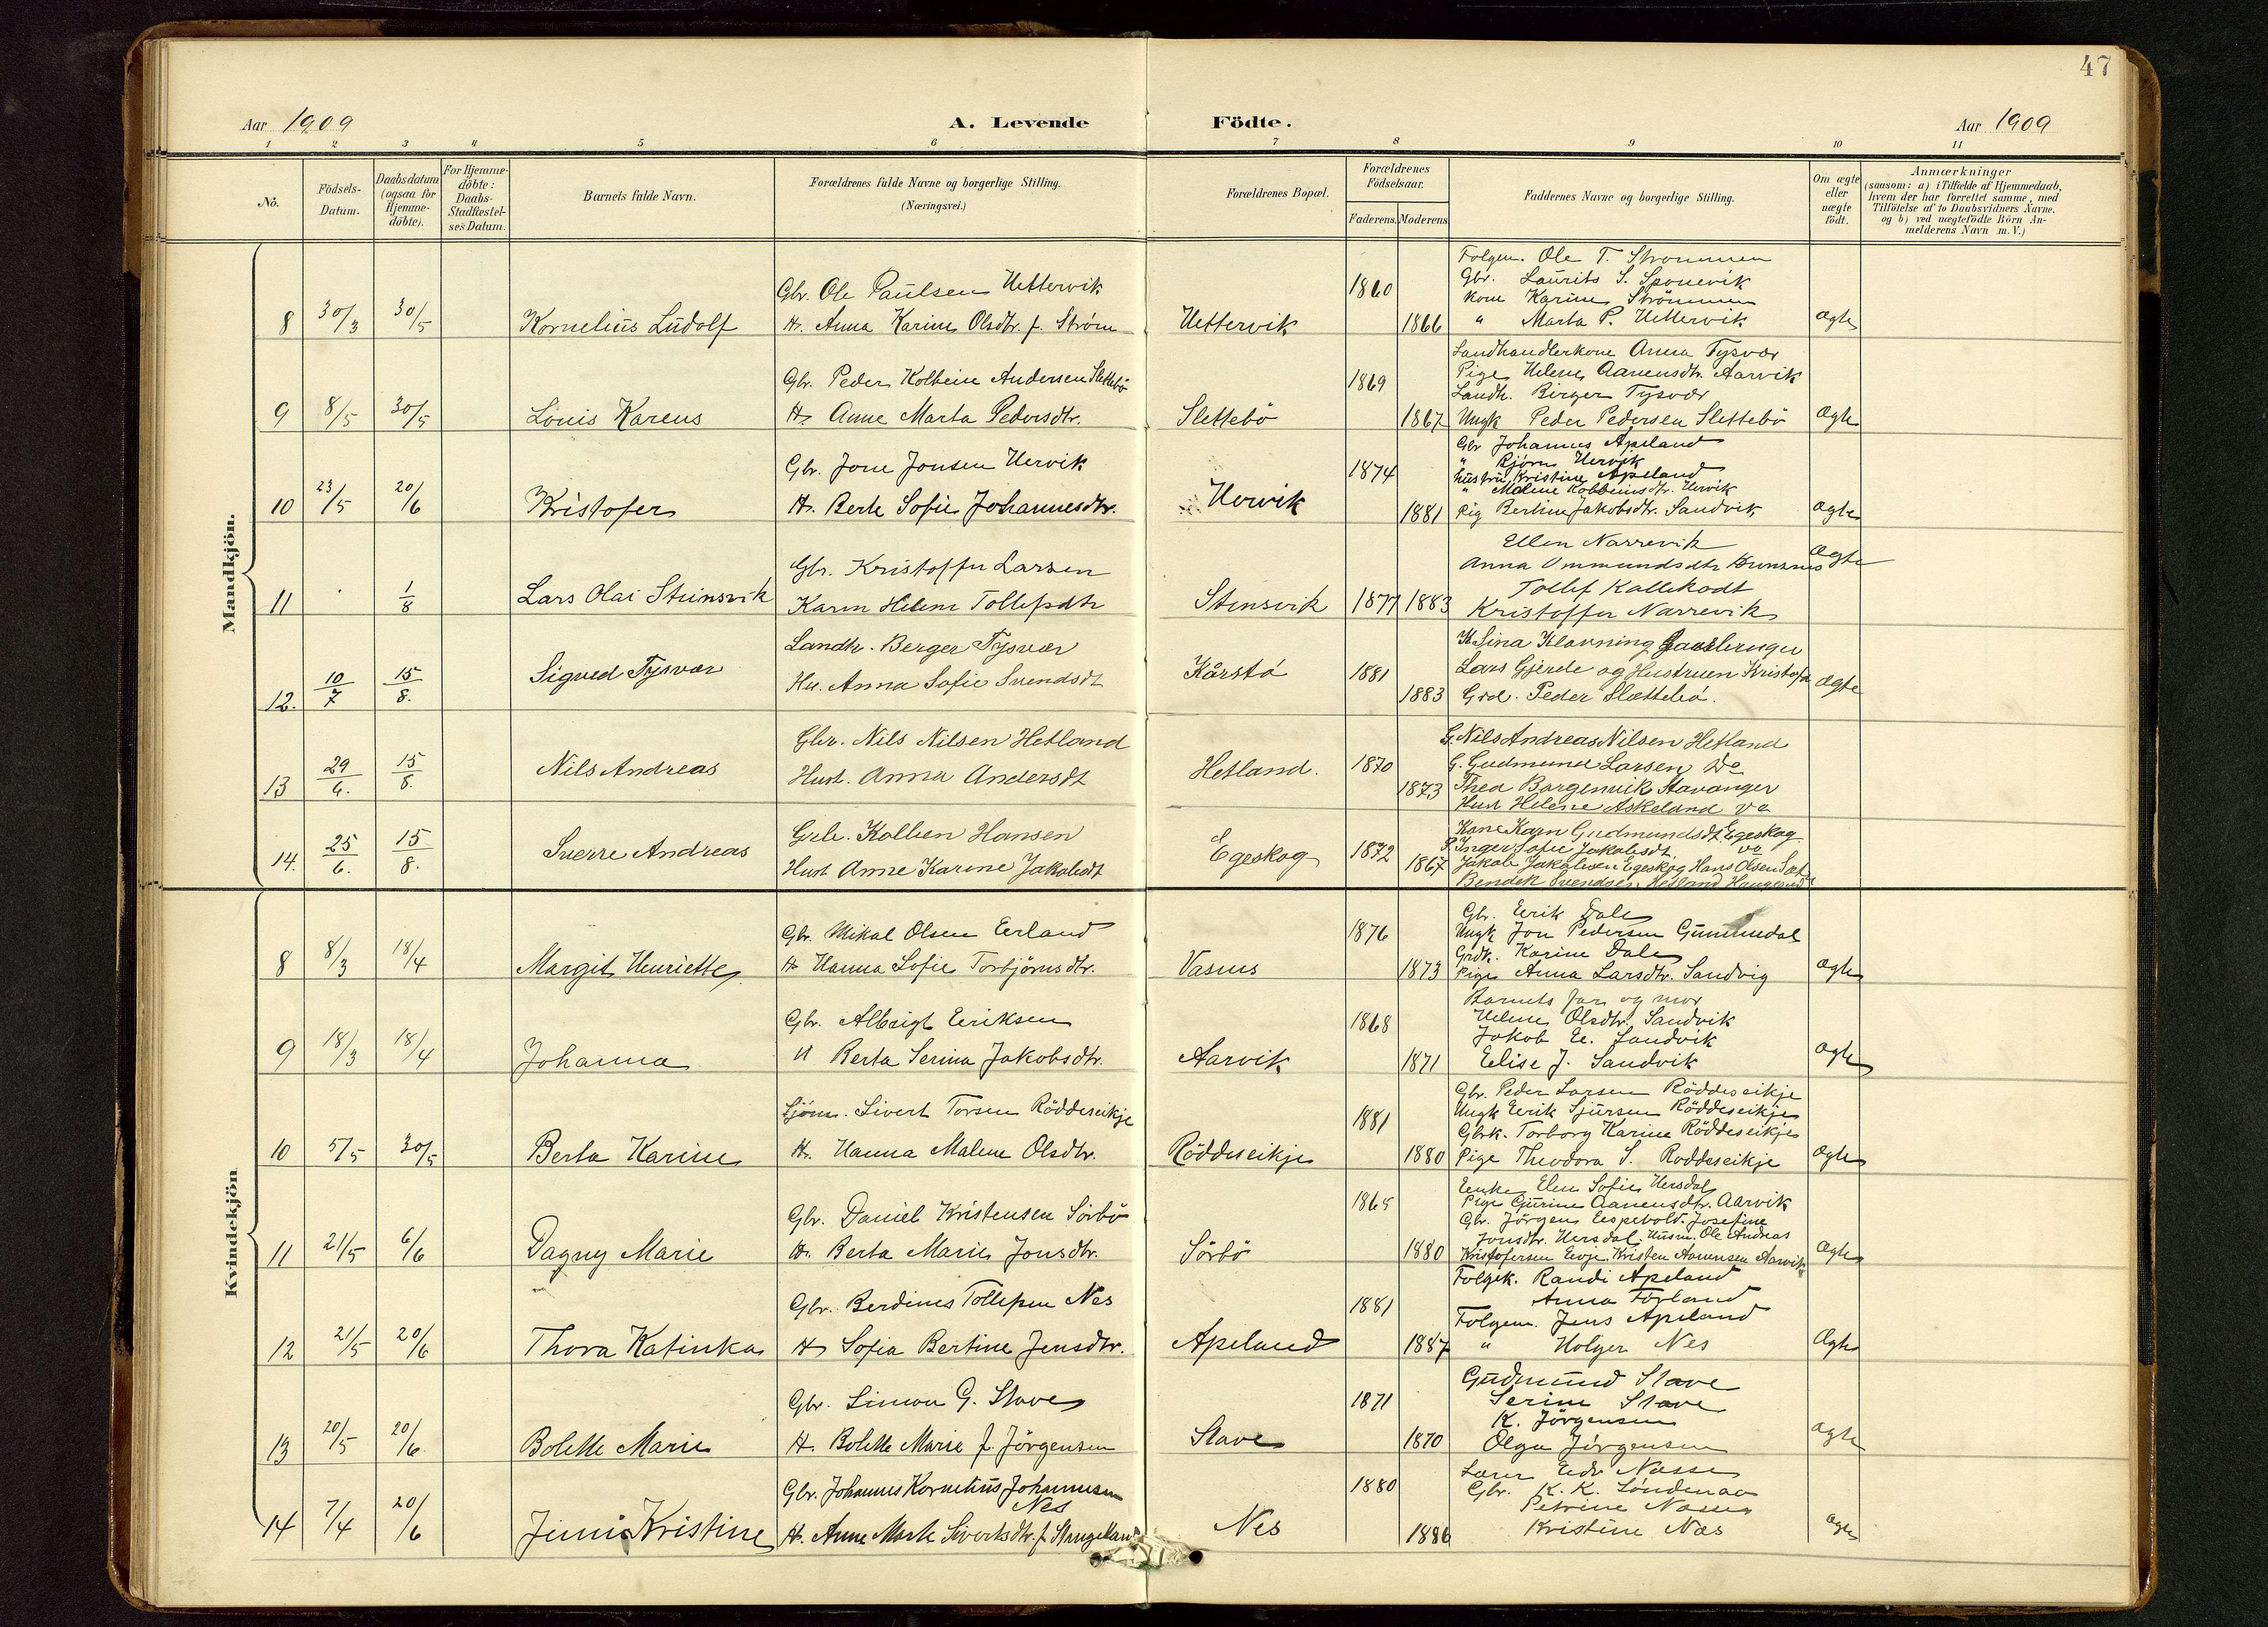 47
Aar 1909
A. Levende Födte.
Aar 1909
1 2 3 4 5 6 7 8 9 10 11
No.
Födsels-Datum.
Daabsdatum (ogsaa for Hjemme-döbte).
For Hjemme-döbte: Daabs-Stadfæstel-ses Datum.
Barnets fulde Navn.
Forældrenes fulde Navne og borgerlige Stilling.
(Næringsvei.)
Forældrenes Bopæl.
Forældrenes Födselsaar.
Faderens. Moderens
Faddernes Navne og borgerlige Stilling.
Om ægte eller uægte födt.
Anmærkninger
(saasom: a) i Tilfælde af Hjemmedaab, hvem der har forrettet samme, med Tilföielse af to Daabsvidners Navne. og b) ved uægtefödte Börn An-melderens Navn m. V.)
Mandkjön.
8 30/3 30/5 Kornelius Ludolf
Gbr. Ole Paulsen Hettervik
H. Anna Karine Olsdtr. f. Strøm
Hettervik 1860 1866
Folgem. Ole T. Strømmen
Gbr. Laurits S. Sponevik
Kone Karine Strömmen
" Marta P. Hettervik
Ægte
9 8/5 30/5 Louis Karens
Gbr. Peder Kolbein Andersen Slettebö
H. Anne Marta Pedersdtr.
Slettebö 1869 1867
Landhandlerkone Anna Tysvær
Pige Helene Aanensdtr. Aarvik
Landh. Birger Tysvær
Ungk Peder Pedersen Slettebö
Ægte
10 23/5 20/6 Kristofer
Gbr. Jone Jonsen Hervik
H. Berte Sofie Johannesdtr.
Hervik 1874 1881
Gbr Johannes Apeland
" Bjørn Hervik
Hustru Kristine Apeland
" Malene Kolbeinsdtr. Hervik
Pig Bertine Jakobsdtr. Sandvik
Ægte
11 1/8 Lars Olai Steinsvik
Gbr. Kristoffer Larsen
Karen Helene Tollefsdtr
Stensvik 1877 1883
Ellen Narrevik
Anna Ommundsdtr
Tollef Kallekodt
Kristoffer Narrevik
Ægte
12. 10/7 15/8. Sigved Tysvær
Landh. Berger Tysvær
Hu. Anna Sofie Svendsdt
Kårstø 1881 1883
H. Sina Klovning
Lars Gjerde og Hustruen Kristofa
Grd. Peder Slettebö.
Ægte
13 29/6. 15/8. Nils Andreas
Gbr. Nils Nilsen Hetland
Hust. Anna Andersdt
Hetland. 1870 1873
G. Nils Andreas Nilsen Hetland
G. Gudmund Larsen Do
Thea Borgenvik Stavanger
Hust Helene Askeland Do
14. 25/6. 15/8. Sverre Andreas
Grb. Kolben Hansen
Hust Anne Karine Jakobsdt
Egeskog 1872 1867
Kone Karn Gudmundsdt. Egeskog
P. Inger Sofie Jakobsdt. Do
Jakob Jakobsen Egeskog Hans Olsen
Bendik Svendsen Hetland Haugesund
Kvindekjön
8 8/3 18/4 Margit Henriette
Gbr. Mikal Olsen Eerland
H Hanna Sofie Torbjörnsdtr.
Vasnes 1876 1873
Gbr. Eerik Dale
Ungk Jon Pedersen Gummedal
Grdk. Karine Dale
Pige Anna Larsdtr. Sandvig
Ægte
9 18/3 18/4 Johanna
Gbr. Albrigt Eeriksen
H Berta Serina Jakobsdtr.
Aarvik 1868 1871
Barnets far og mor
Helene Olsdtr. Sandvik
Jakob Ee. Sandvik
Eelise J. Sandvik
Ægte
10 5/5 30/5 Berta Karine
Sjöm. Sivert Torsen Röddeseikje
H. Hanna Malene Olsdtr.
Röddeseikje 1881 1880
Gbr. Peder Larsen Röddeseikje
Ungk Eerik Sjursen Röddeseikje
Gbrk. Torborg Karine Röddeseikje
Pige Theodora S. Roddeseikje
Ægte
11 21/5 6/6 Dagny Marie
Gbr. Daniel Kristensen Sörbö
H. Berta Marie Jonsdtr.
Sörbö 1865 1880
Eenke Elen Sofie Hersdal
Pige Gjurine Aanensdtr. Aarvik
Gbr. Jörgen Eespevold. Josefine
Jonsdtr. Hersdal. Husm. Ole Andreas
Kristofersen Eevje. Kristen Aanensen Aarvik
Ægte
12 21/5 20/6 Thora Katinka
Gbr. Berdines Tollefsen Nes
H Sofia Bertine Jensdtr.
Apeland 1881 1887
Folgek. Randi Apeland
Anna Förland
Folgem. Jens Apeland
" Holger Nes
Ægte
13 20/5 20/6 Bolette Marie
Gbr. Simon G. Stave
H. Bolette Marie f. Jörgensen
Stave 1871 1870
Gudmund Stave
Serine Stave
K. Jörgensen
Olga Jörgensen
Ægte
14 7/4 20/6 Jenni Kristine
Gbr. Johannes Kornelius Johannesen
Nes
H. Anne Marte Sivertsdtr. f. Stangeland
Nes 1880 1886
Lærer Nasse
Gbr. K. K. Söndenaa
Petrine Nasse
Kristine Næs
Ægte